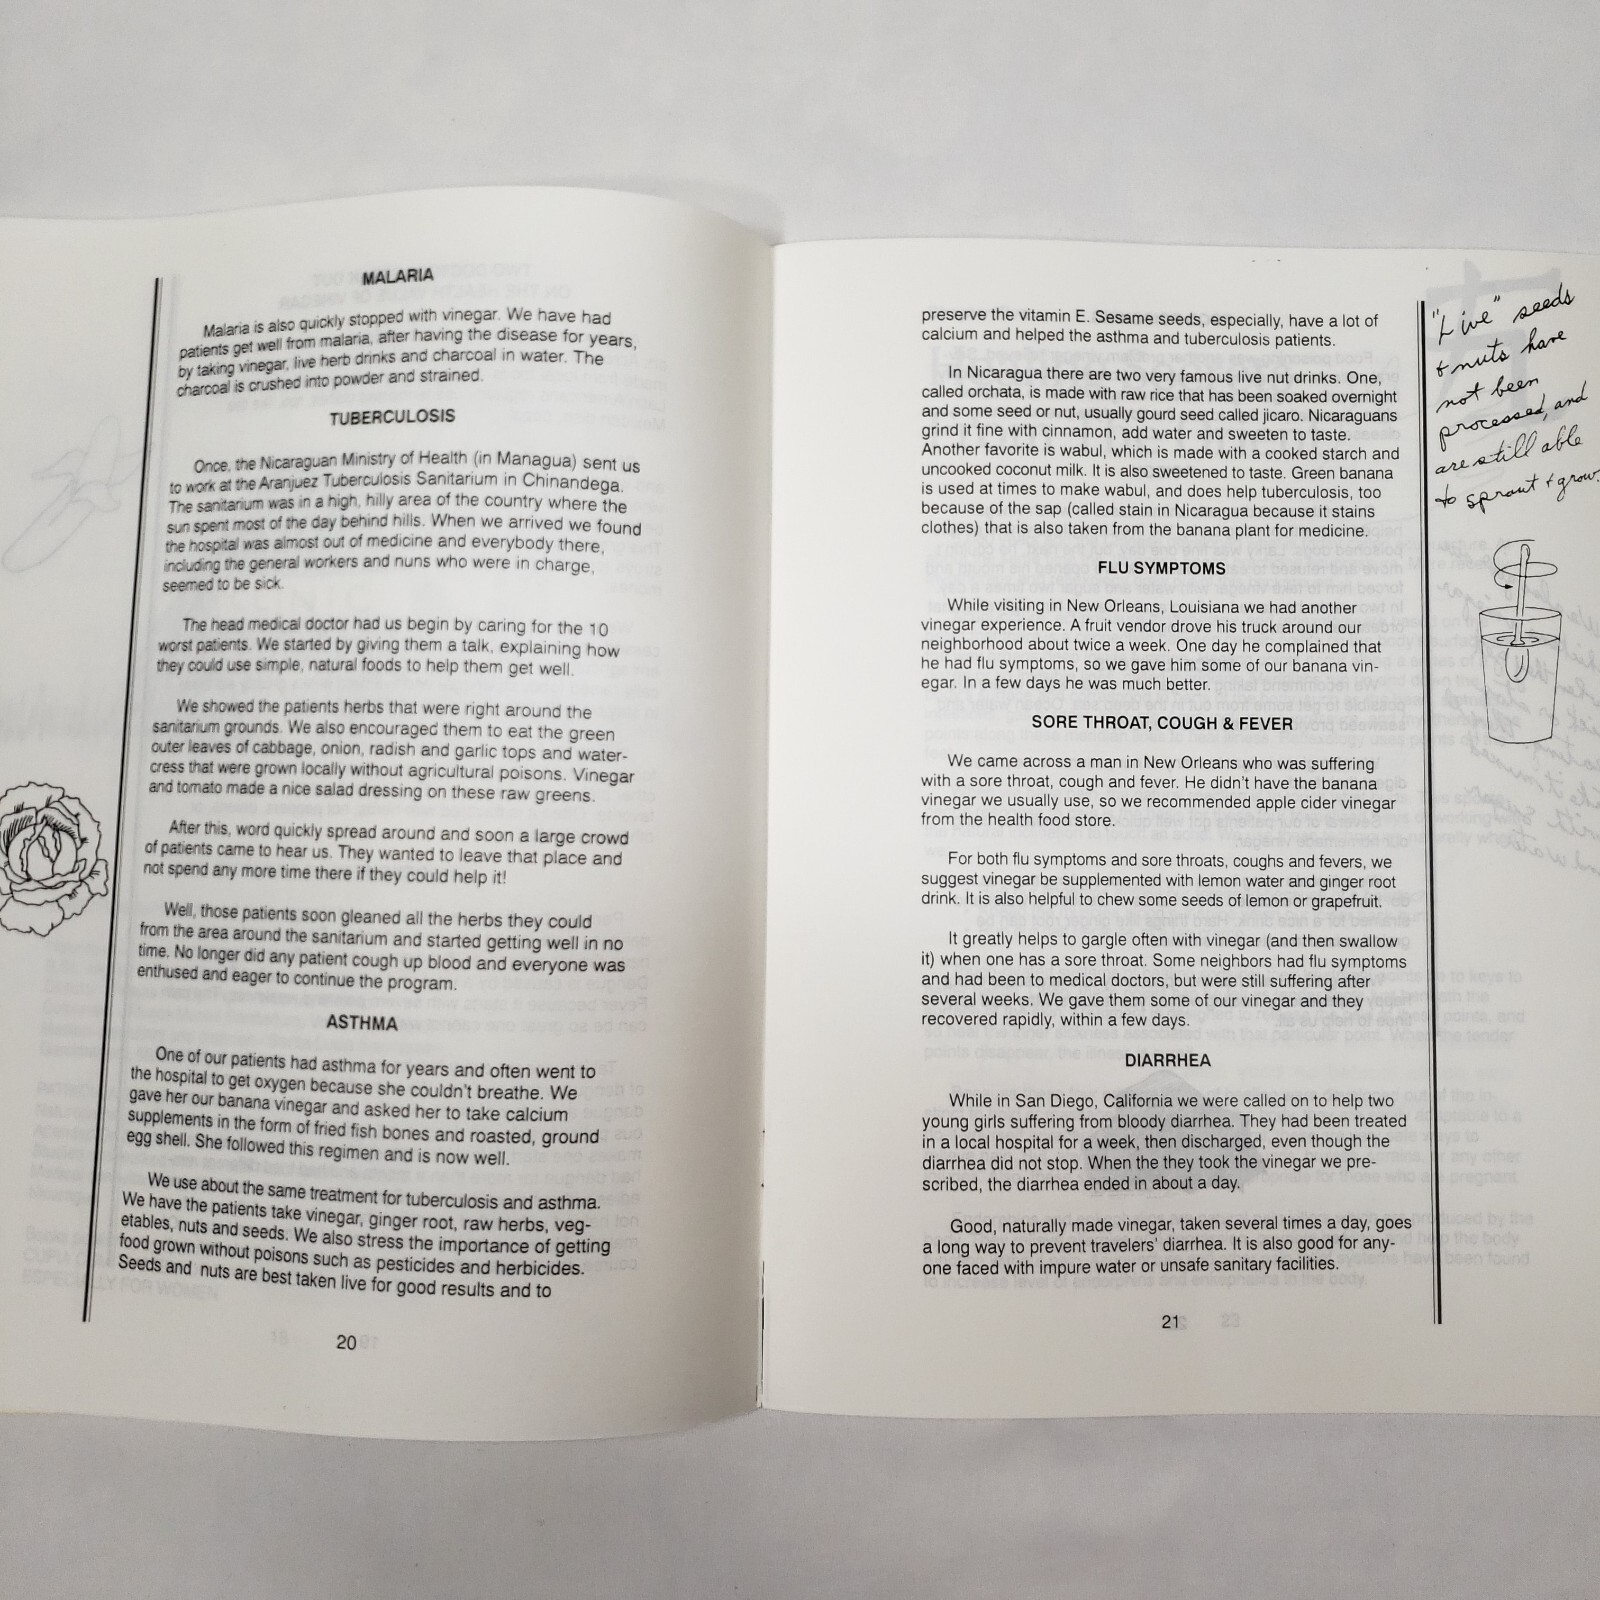 MALARIA
Malaria is also quickly stopped with vinegar. We have had
patients get well from malaria, after having the disease for years,
by taking vinegar, live herb drinks and charcoal in water. The
charcoal is crushed into powder and strained.
TUBERCULOSIS
Once, the Nicaraguan Ministry of Health (in Managua) sent us
to work at the Aranjuez Tuberculosis Sanitarium in Chinandega.
The sanitarium was in a high, hilly area of the country where the
sun spent most of the day behind hills. When we arrived we found
the hospital was almost out of medicine and everybody there,
including the general workers and nuns who were in charge,
seemed to be sick.
The head medical doctor had us begin by caring for the 10
worst patients. We started by giving them a talk, explaining how
they could use simple, natural foods to help them get well.
We showed the patients herbs that were right around the
sanitarium grounds. We also encouraged them to eat the green
outer leaves of cabbage, onion, radish and garlic tops and water-
cress that were grown locally without agricultural poisons. Vinegar
and tomato made a nice salad dressing on these raw greens.
After this, word quickly spread around and soon a large crowd
of patients came to hear us. They wanted to leave that place and
not spend any more time there if they could help it!
Well, those patients soon gleaned all the herbs they could
from the area around the sanitarium and started getting well in no
time. No longer did any patient cough up blood and everyone was
enthused and eager to continue the program.
ASTHMA
One of our patients had asthma for years and often went to
the hospital to get oxygen because she couldn't breathe. We
gave her our banana vinegar and asked her to take calcium
supplements in the form of fried fish bones and roasted, ground
egg shell. She followed this regimen and is now well.
We use about the same treatment for tuberculosis and asthma.
We have the patients take vinegar, ginger root, raw herbs, veg-
etables, nuts and seeds. We also stress the importance of getting
food grown without poisons such as pesticides and herbicides.
Seeds and nuts are best taken live for good results and to
20
preserve the vitamin E. Sesame seeds, especially, have a lot of
calcium and helped the asthma and tuberculosis patients.
In Nicaragua there are two very famous live nut drinks. One,
called orchata, is made with raw rice that has been soaked overnight
and some seed or nut, usually gourd seed called jicaro. Nicaraguans
grind it fine with cinnamon, add water and sweeten to taste.
Another favorite is wabul, which is made with a cooked starch and
uncooked coconut milk. It is also sweetened to taste. Green banana
is used at times to make wabul, and does help tuberculosis, too
because of the sap (called stain in Nicaragua because it stains
clothes) that is also taken from the banana plant for medicine.
FLU SYMPTOMS
While visiting in New Orleans, Louisiana we had another
vinegar experience. A fruit vendor drove his truck around our
neighborhood about twice a week. One day he complained that
he had flu symptoms, so we gave him some of our banana vin-
egar. In a few days he was much better.
SORE THROAT, COUGH & FEVER
We came across a man in New Orleans who was suffering
with a sore throat, cough and fever. He didn't have the banana
vinegar we usually use, so we recommended apple cider vinegar
from the health food store.
For both flu symptoms and sore throats, coughs and fevers, we
suggest vinegar be supplemented with lemon water and ginger root
drink. It is also helpful to chew some seeds of lemon or grapefruit.
It greatly helps to gargle often with vinegar (and then swallow
it) when one has a sore throat. Some neighbors had flu symptoms
and had been to medical doctors, but were still suffering after
several weeks. We gave them some of our vinegar and they
recovered rapidly, within a few days.
DIARRHEA
While in San Diego, California we were called on to help two
young girls suffering from bloody diarrhea. They had been treated
in a local hospital for a week, then discharged, even though the
diarrhea did not stop. When the they took the vinegar we pre-
scribed, the diarrhea ended in about a day.
Good, naturally made vinegar, taken several times a day, goes
a long way to prevent travelers' diarrhea. It is also good for any-
one faced with impure water or unsafe sanitary facilities.
21
"Live" seeds
+ nuts have
not been
processed, and
are still able
to sprout + grow.